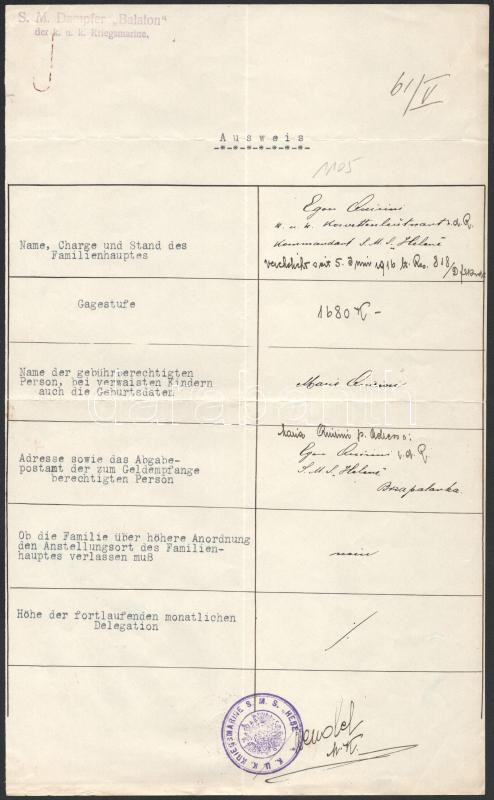 S. M. Dampfer „Balaton"
der k. u. k. Kriegsmarine.
61/V
Ausweis
-*-*-*-*-*-*-
1105
Name, Charge und Stand des
Familienhauptes
Egon Quirini
k. u. k. Korvettenleutnant i. d. R.
Kommandant S.M.S. Helene
seit 5. Juni 1916 818/
Gagestufe
1680 K -
Name der gebührberechtigten
Person, bei verwaisten Kindern
auch die Geburtsdaten
Maria Quirini
darabanth
Adresse sowie das Abgabe-
postamt der zum Geldempfange
berechtigten Person
Maria Quirini p. Adresse:
Egon Quirini i. d. R.
S.M.S. Helene
Bazapalanka
Ob die Familie über höhere Anordnung
den Anstellungsort des Familien-
hauptes verlassen muß
nein
Höhe der fortlaufenden monatlichen
Delegation
/.
K. U. K. KRIEGSMARINE S. M. S.